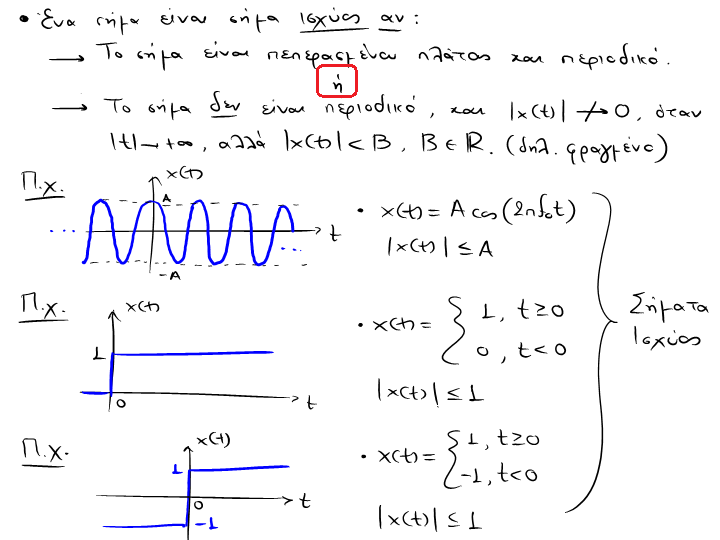 • Ένα σήμα είναι σήμα Ισχύος αν:
→ Το σήμα είναι πεπερασμένου πλάτος και περιοδικό.
ή
→ Το σήμα δεν είναι περιοδικό, και |x(t)| ↛ 0, όταν
|t| → +∞, αλλά |x(t)| < B, B ∈ R. (δηλ. φραγμένο)
Π.χ.
x(t)
A
t
...
...
-A
• x(t) = A cos(2πf₀t)
|x(t)| ≤ A
Π.χ.
x(t)
1
0
t
• x(t) = { 1, t ≥ 0
0, t < 0
|x(t)| ≤ 1
Σήματα
Ισχύος
Π.χ.
x(t)
1
0
t
-1
• x(t) = { 1, t ≥ 0
-1, t < 0
|x(t)| ≤ 1